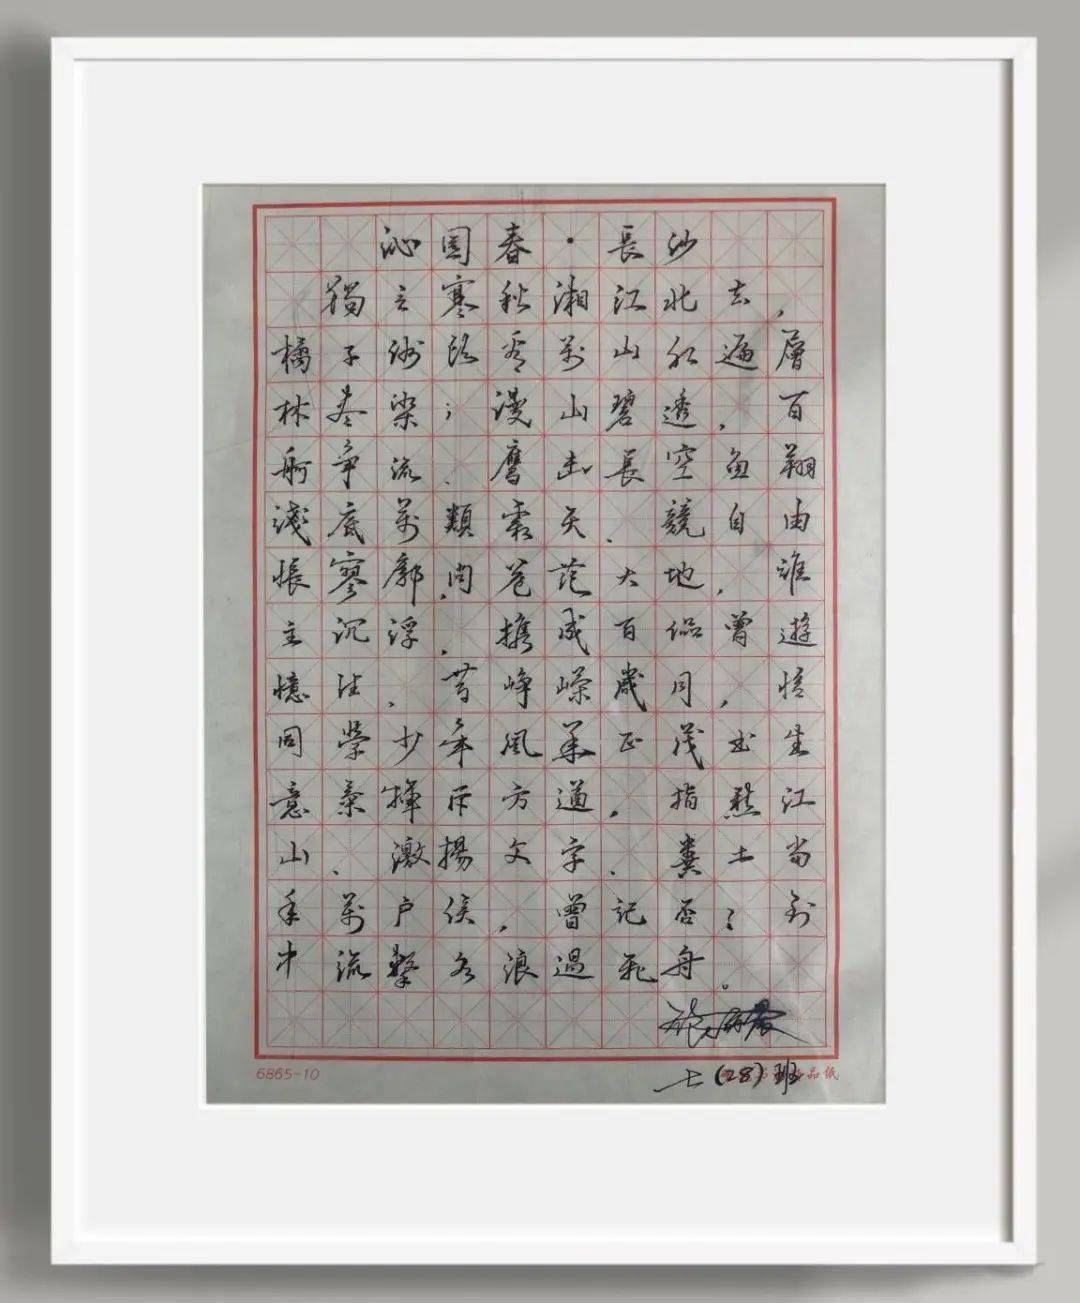 沁園春·長沙
獨立寒秋湘江北去,
橘子洲頭看萬山紅遍層
林盡染;漫山碧透,百
舸爭流.鷹击長空魚翔
淺底萬類霜天.競自由
悵寥廓,問苍茫大地,誰
主沉浮,攜成百侣曾遊
憶往,昔崢嶸歲月,恰
同學少年風華正茂書生
意氣揮斥方遒,指點江
山、激揚文字.糞土當
年萬户侯,曾記否;到
中流擊水浪遏飛舟。
七(28)班
6865-10
品纸